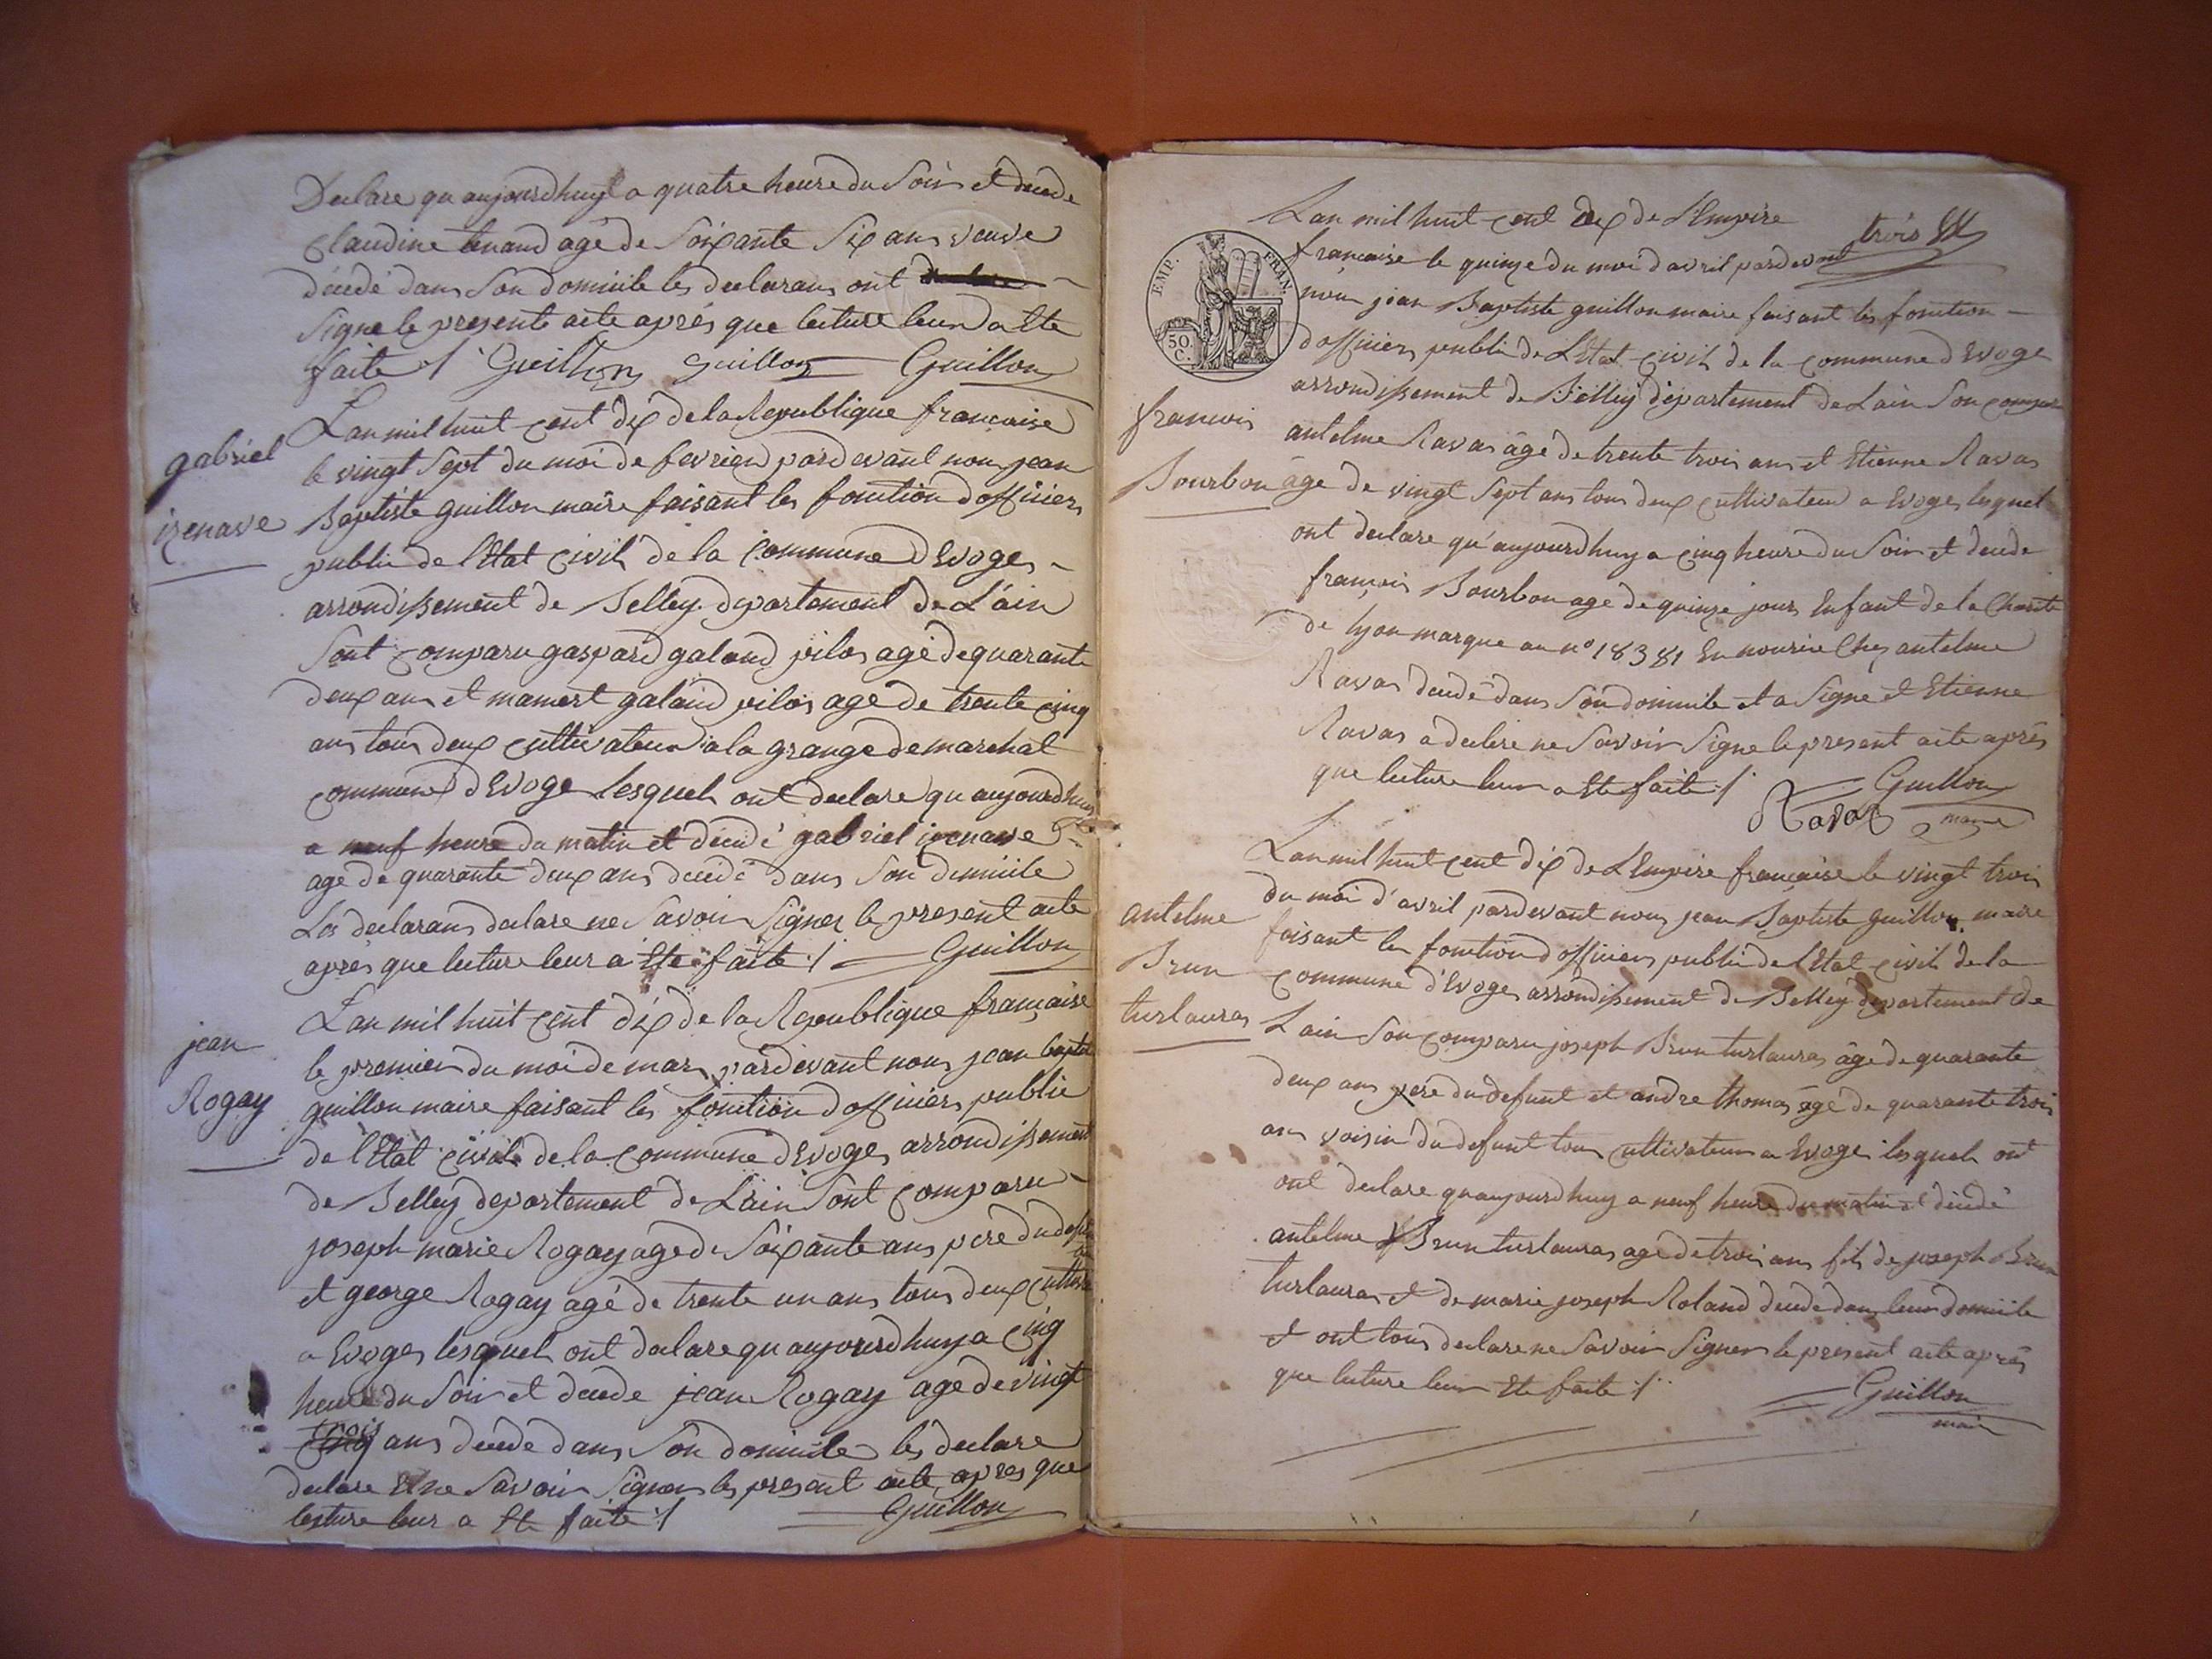 Declare qu aujourdhuy a quatre heure du Soir et decede
Claudine tenand agé de Soixante Six ans veuve
décedé dans Son domicile les declarans ont
Signe le presente acte aprés que lecture leur a Ete
faite ./ Guillon Guillon Guillon
gabriel
izenave
L an mil huit cent dix de la Republique francaise
le vingt Sept du moi de fevrier pardevant nous jean
Baptiste guillon maire faisant les fonction d officier
public de l Etat Civil de la Commune d Evoges
arrondissement de Belley departement de L'ain
Sont Comparu gaspard galand pilos agé de quarante
deux ans et mamert galand pilos age de trente cinq
ans tous deux cultivateur a la grange de marchat
commune d Evoge Lesquels ont declare qu aujourdhuy
a neuf heure du matin et décédé gabriel izenave
agé de quarante deux ans décédé dans Son domicile
Les declarans declare ne Savoir Signer le present acte
aprés que lecture leur a Ete faite ./ Guillon
jean
Rogay
L an mil huit cent dix de la Republique française
le premier du moi de mars pardevant nous jean baptiste
guillon maire faisant les fonction d officier public
de l Etat civil de la commune d Evoges arrondissement
de Belley departement de Lain Sont Comparu
joseph marie Rogay agé de Soixante ans pere du defunt
et george Rogay agé de trente un ans tous deux
a Evoges lesquels ont declare qu aujourdhuy a cinq
heure du Soir et decede jean Rogay agé de vingt
trois ans décede dans Son domicile les declare
declare ne Savoir Signer le present acte apres que
lecture leur a Ete faite ./ Guillon
trois
L an mil huit cent dix de l Empire
francaise le quinze du moi d avril pardevant
EMP. FRAN.
50. C.
nous jean Baptiste guillon maire faisant les fonction
d officier public de L Etat Civil de la commune d Evoge
arrondissement de Belley departement de Lain Son comparu
francois
Bourbon
antelme Ravas âgé de trente trois ans et Etienne Ravas
âge de vingt Sept ans tous deux cultivateur a Evoges lesquel
ont declare qu'aujourdhuy a cinq heure du Soir et decede
françois Bourbon age de quinze jours Enfant de la Charite
de lyon marque au n° 18381 En nourice Chez antelme
Ravas decedé dans Son domicile et a Signe et Etienne
Ravas a declere ne Savoir Signe le present acte aprés
que lecture leur a Ete faite ./ Guillon
Ravas maire
antelme
Brun
turlauras
L an mil huit cent dix de L Empire française le vingt trois
du moi d'avril pardevant nous jean Baptiste guillon maire
faisant les fonction d officier public de l Etat civil de la
commune d'Evoges arrondissement de Belley departement de
Lain Son Comparu joseph Brun turlauras âgé de quarante
deux ans pere du defunt et andre thomas agé de quarante trois
ans voisin du defunt tous cultivateur a Evoges lesquels ont
ont declare qu aujourdhuy a neuf heure du matin et décédé
antelme Brun turlauras agé de trois ans fils de joseph Brun
turlauras et de marie joseph Roland decede dans leur domicile
et ont tous declare ne Savoir Signer le present acte aprés
que lecture leur Ete faite ./ Guillon
maire